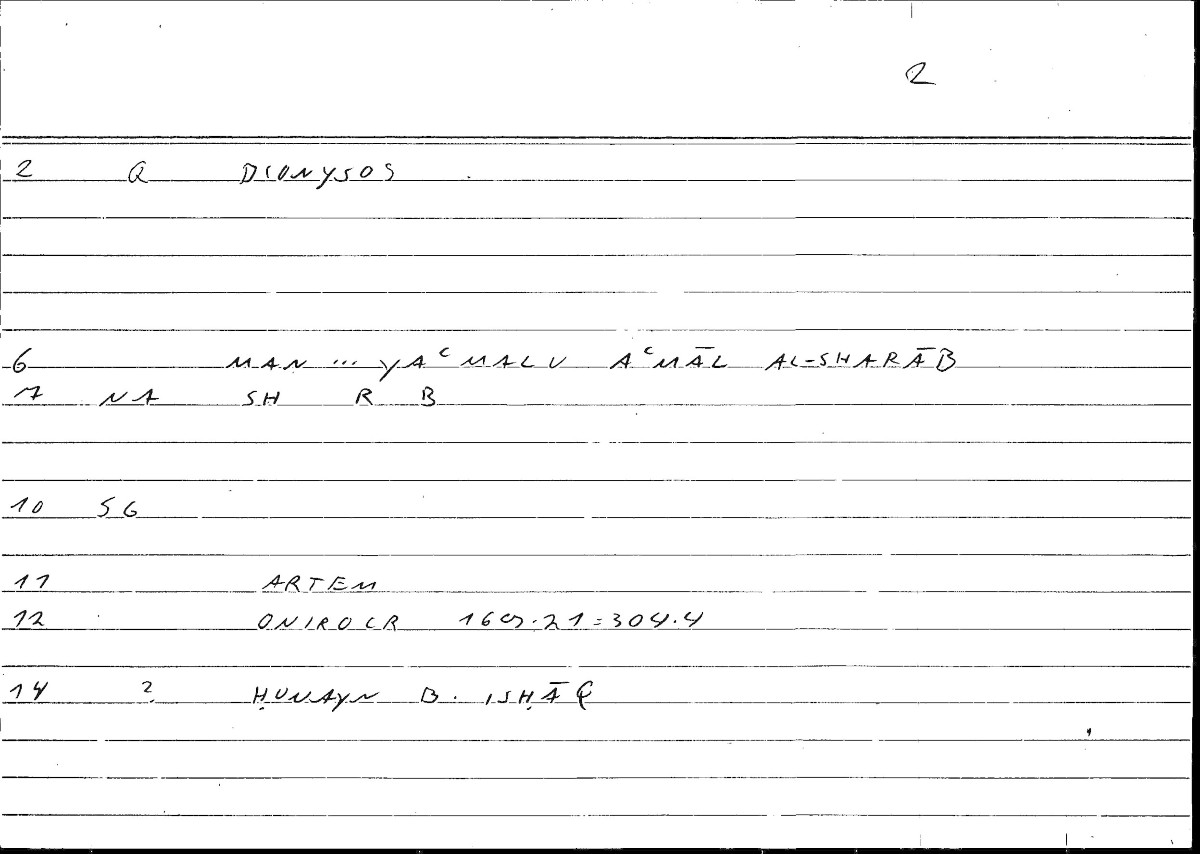 2
2 Q DIONYSOS
6 MAN ... YAᶜMALU AᶜMĀL AL-SHARĀB
7 NA SH R B
10 SG
11 ARTEM
12 ONIROCR 169.21=304.4
14 2 ḤUNAYN B. ISḤĀQ